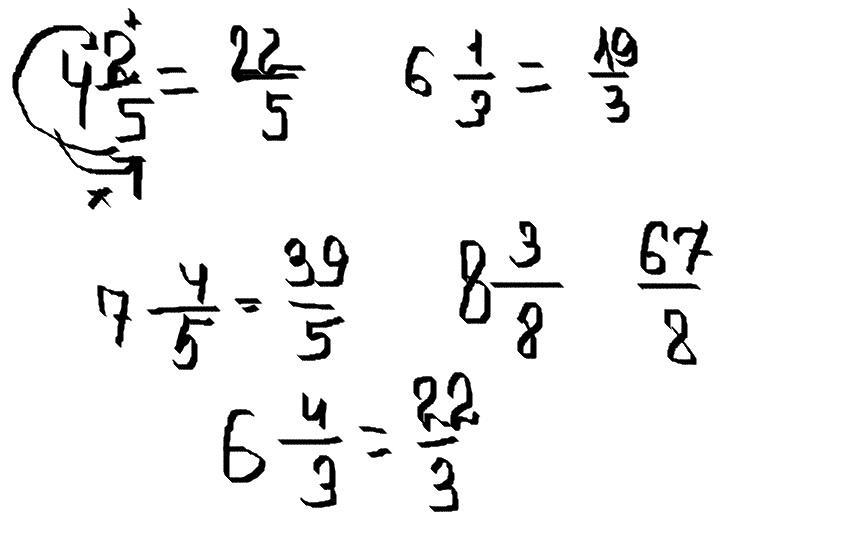 4 2/5 = 22/5  6 1/3 = 19/3
+
*
7 4/5 = 39/5  8 3/8  67/8
6 4/3 = 22/3